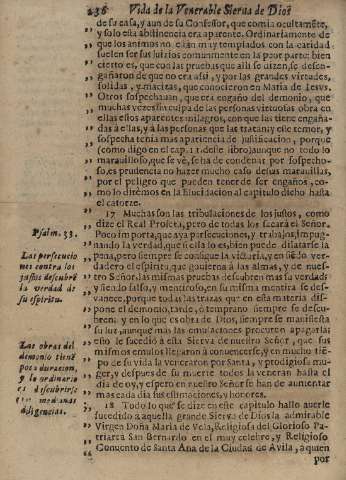 236 Vida de la Venerable Sierua de Dios
de su casa, y aun de su Confessor, que comia ocultamẽte,
y solo esta abstinencia era aparente. Ordinariamente de
que los animos no estàn muy templados con la caridad,
suelen ser sus juizios comunmente en la peor parte: bien
cierto es, que con las pruebas que alli se
gañaron de que no era assi, y por las grandes virtudes,
solidas, y mazizas, que conocieron en Maria de Iesus.
Otros sospechauan, que era engaño del demonio, que
muchas vezes sin culpa de las personas virtuosas obra en
ellas estos aparentes milagros, con que las tiene engaña-
das à ellas, y à las personas que las tratan; y este temor, y
sospecha tenia mas aparencia de justificacion, porque
(como digo en el cap. 11 deste libro) aunque no todo lo
marauilloso, que se vè, se ha de condenar por sospecho-
so, es prudencia no hazer mucho caso de las marauillas,
por el peligro que pueden tener de ser engaños, como
lo dixèmos en la Elucidacion al capitulo dicho hasta
el catorze.
17 Muchas son las tribulaciones de los justos, como
dize el Real Profeta, pero de todas los sacarà el Señor.
Poco importa, que aya persecuciones, y trabajos, impug-
nando la verdad, que si ella lo es, bien puede dilatarse la
pena, pero siempre se consigue la victoria, y en siẽdo ver-
dadero el espiritu, que gouierna à las almas, y de nues-
tro Señor, las mismas pruebas descubren mas su verdad;
y siendo falso, y mentiroso, en su misma mentira se des-
vanece, porque todas las trazas que en esta materia dis-
pone el demonio, tarde, ò temprano siempre se descu-
bren; y en lo que es obra de Dios, siempre se manifiesta
su luz, aunque mas las emulaciones procuren apagarla;
esto le sucediò à esta Sierva de nuestro Señor, que sus
mismos emulos llegaron à conocerse, y en mucho tiẽ-
po de su vida la veneraron por Santa, y prodigiosa mu-
ger, y despues de su muerte todos la veneran hasta el
dia de oy, y espero en nuestro Señor se han de aumentar
mas cada dia sus estimaciones, y honores.
18 Todo lo que se dize en este capitulo hallo auerle
sucedido à aquella grande Sierva de Dios la admirable
Virgen Doña Maria de Vela, Religiosa del Glorioso Pa-
triarca San Bernardo en el muy celebre, y Religioso
Conuento de Santa Ana de la Ciudad de Avila, a quien
por
Psalm. 33.
Las persecucio
nes contra los
justos descubrẽ
la verdad de
su espiritu.
Las obras del
demonio tienẽ
poca duracion,
y lo ordinario
es descubrirse
con medianas
diligencias.